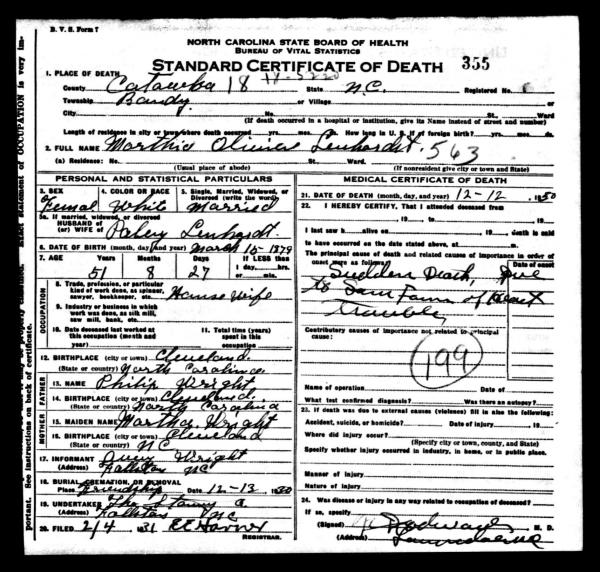 B. V. S. Form 7
NORTH CAROLINA STATE BOARD OF HEALTH
BUREAU OF VITAL STATISTICS
STANDARD CERTIFICATE OF DEATH 355
1. PLACE OF DEATH
County Catawba 18 State N.C. Registered No.
Township Bandy or Village
City No. St. Ward
(If death occurred in a hospital or institution, give its Name instead of street and number)
Length of residence in city or town where death occurred yrs. mos. ds. How long in U. S. if of foreign birth? yrs. mos. ds.
2. FULL NAME Marthie Lenhardt. 563
(a) Residence: No. St. Ward
(Usual place of abode) (If nonresident give city or town and State)
PERSONAL AND STATISTICAL PARTICULARS
3. SEX 4. COLOR OR RACE 5. Single, Married, Widowed, or Divorced (write the word)
Femal White Married
5a. If married, widowed, or divorced
HUSBAND of
(or) WIFE of Lenhardt.
6. DATE OF BIRTH (month, day, and year) March 15-1879
7. AGE Years Months Days If LESS than
51 8 27 1 day, hrs.
or min.
OCCUPATION
8. Trade, profession, or particular
kind of work done, as spinner,
sawyer, bookkeeper, etc. House Wife
9. Industry or business in which
work was done, as silk mill,
saw mill, bank, etc.
10. Date deceased last worked at
this occupation (month and
year)
11. Total time (years)
spent in this
occupation
12. BIRTHPLACE (city or town) Cleveland.
(State or country) North Carolina.
FATHER
13. NAME Philip Wright
14. BIRTHPLACE (city or town) Cleveland.
(State or country) North Carolina
MOTHER
15. MAIDEN NAME Martha Wright
16. BIRTHPLACE (city or town) Cleveland
(State or country) NC
17. INFORMANT Wright
(Address) NC
18. BURIAL, CREMATION, OR REMOVAL
Place Friendship Date 12-13 1930
19. UNDERTAKER
(Address) NC
20. FILED 2/4 31
REGISTRAR.
MEDICAL CERTIFICATE OF DEATH
21. DATE OF DEATH (month, day, and year) 12-12 1930
22. I HEREBY CERTIFY, That I attended deceased from
, 19 , to , 19
I last saw h alive on , 19 , death is said
to have occurred on the date stated above, at m.
The principal cause of death and related causes of importance in order of
onset were as follows: Date of onset
Sudden Death, Due
to Some Form of Heart
Trouble
Contributory causes of importance not related to principal
cause:
199
Name of operation Date of
What test confirmed diagnosis? Was there an autopsy?
23. If death was due to external causes (violence) fill in also the following:
Accident, suicide, or homicide? Date of injury 19
Where did injury occur?
(Specify city or town, county, and State)
Specify whether injury occurred in industry, in home, or in public place.
Manner of injury
Nature of injury
24. Was disease or injury in any way related to occupation of deceased?
If so, specify
(Signed) M. D.
(Address)